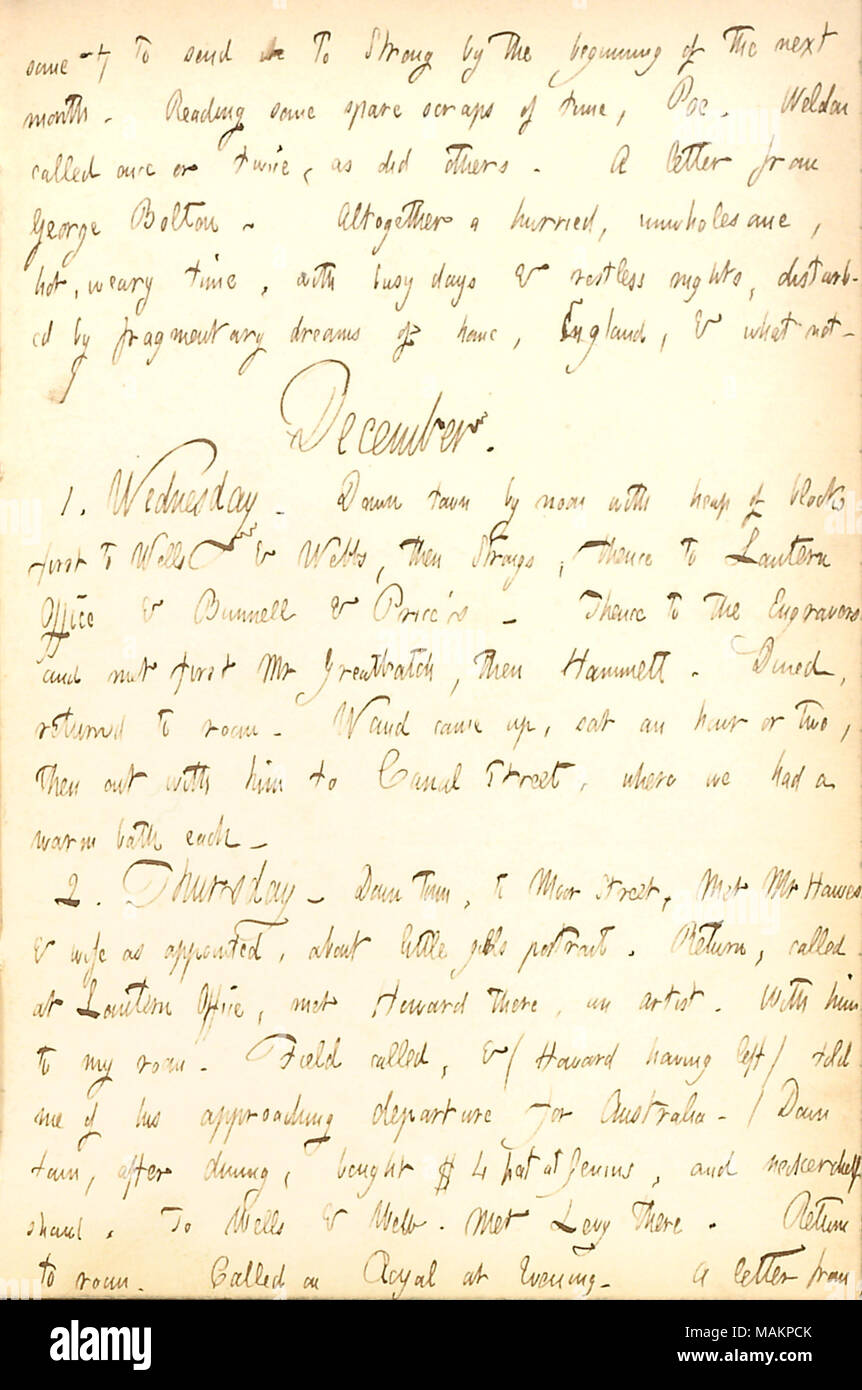 some to send to Strong by the beginning of the next
month. Reading some spare scraps of time, Poe. Weldon
called once or twice, as did others. A letter from
George Bolton. Altogether a hurried, unwholesome,
hot, weary time, with busy days & restless nights, disturb-
ed by fragmentary dreams of home, England, & what not-
December.
1. Wednesday. Down town by noon with heap of blocks
first to Wells & Webbs, then Strongs, thence to Lantern
Office & Bunnell & Price's. Thence to the Engravers
and met first Mr Greatbatch, then Hammett. Dined,
returned to room. Waud came up, sat an hour or two,
then out with him to Canal Street, where we had a
warm bath each.
2. Thursday. Down town, to Moor Street, met Mr Hawes
& wife as appointed, about little girls portrait. Return, called
at Lantern Office, met Howard there, an artist. With him
to my room. Field called, & (Howard having left) told
me of his approaching departure for Australia. / Down
town, after dining, bought $4 hat at Jenins, and neckerchief
shawl. To Wells & Webb. Met Levy there. Return
to room. Called on Royal at Evening. A letter from
alamy
Image ID: MAKPCK
www.alamy.com